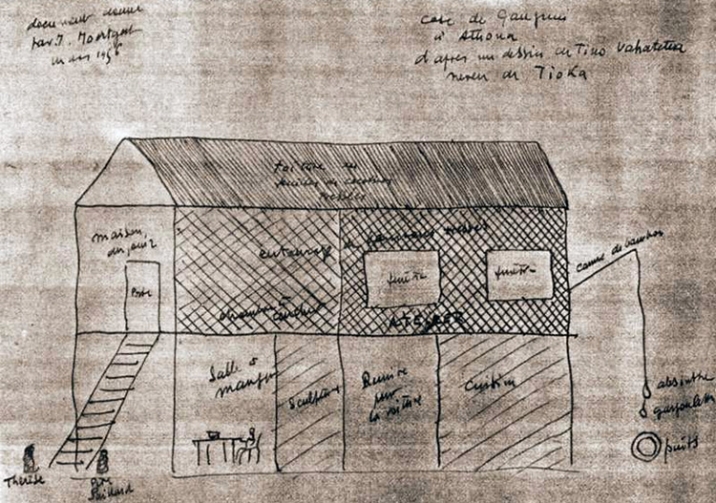 document donné
par J.
mars 1956
case de Gauguin
à Atuona
d'après un dessin de Timo Vahatetua
neveu de Tioka
toiture en
feuilles de cocotier
tressées
maison
du jouir
Porte
entourage de bambous tressés
fenêtre
fenêtre
chambre à
coucher
ATELIER
canne de bambou
Salle à
manger
Sculpture
Remise
pour
la voiture
Cuisine
absinthe
gargoulette
puits
Thérèse
Père
Paillard